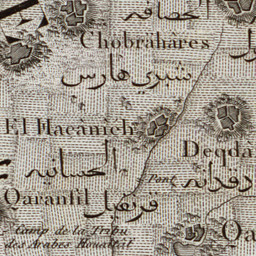 الحصافه
Chobrâhâres
شبرى هارس
El Haçânieh
الحسانيه
Deqdâ
دقدانه
Pont
Qaranfil
قرنفيل
Camp de la Tribu
des Arabes Houattât
Qa